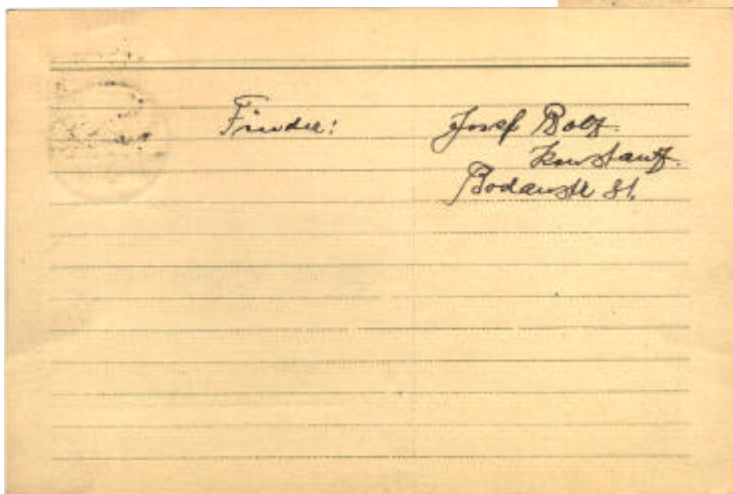 Finder: Josef Bolz.
Konstanz.
Bodanstr 81.